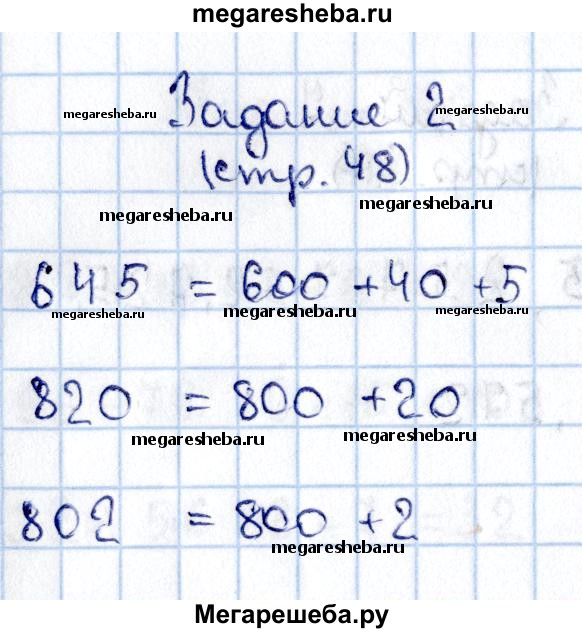 megaresheba.ru
Задание 2
megaresheba.ru megaresheba.ru
(стр. 48)
megaresheba.ru megaresheba.ru
645 = 600 + 40 + 5
megaresheba.ru megaresheba.ru megaresheba.ru
820 = 800 + 20
megaresheba.ru megaresheba.ru
802 = 800 + 2
megaresheba.ru
Мегарешеба.ру